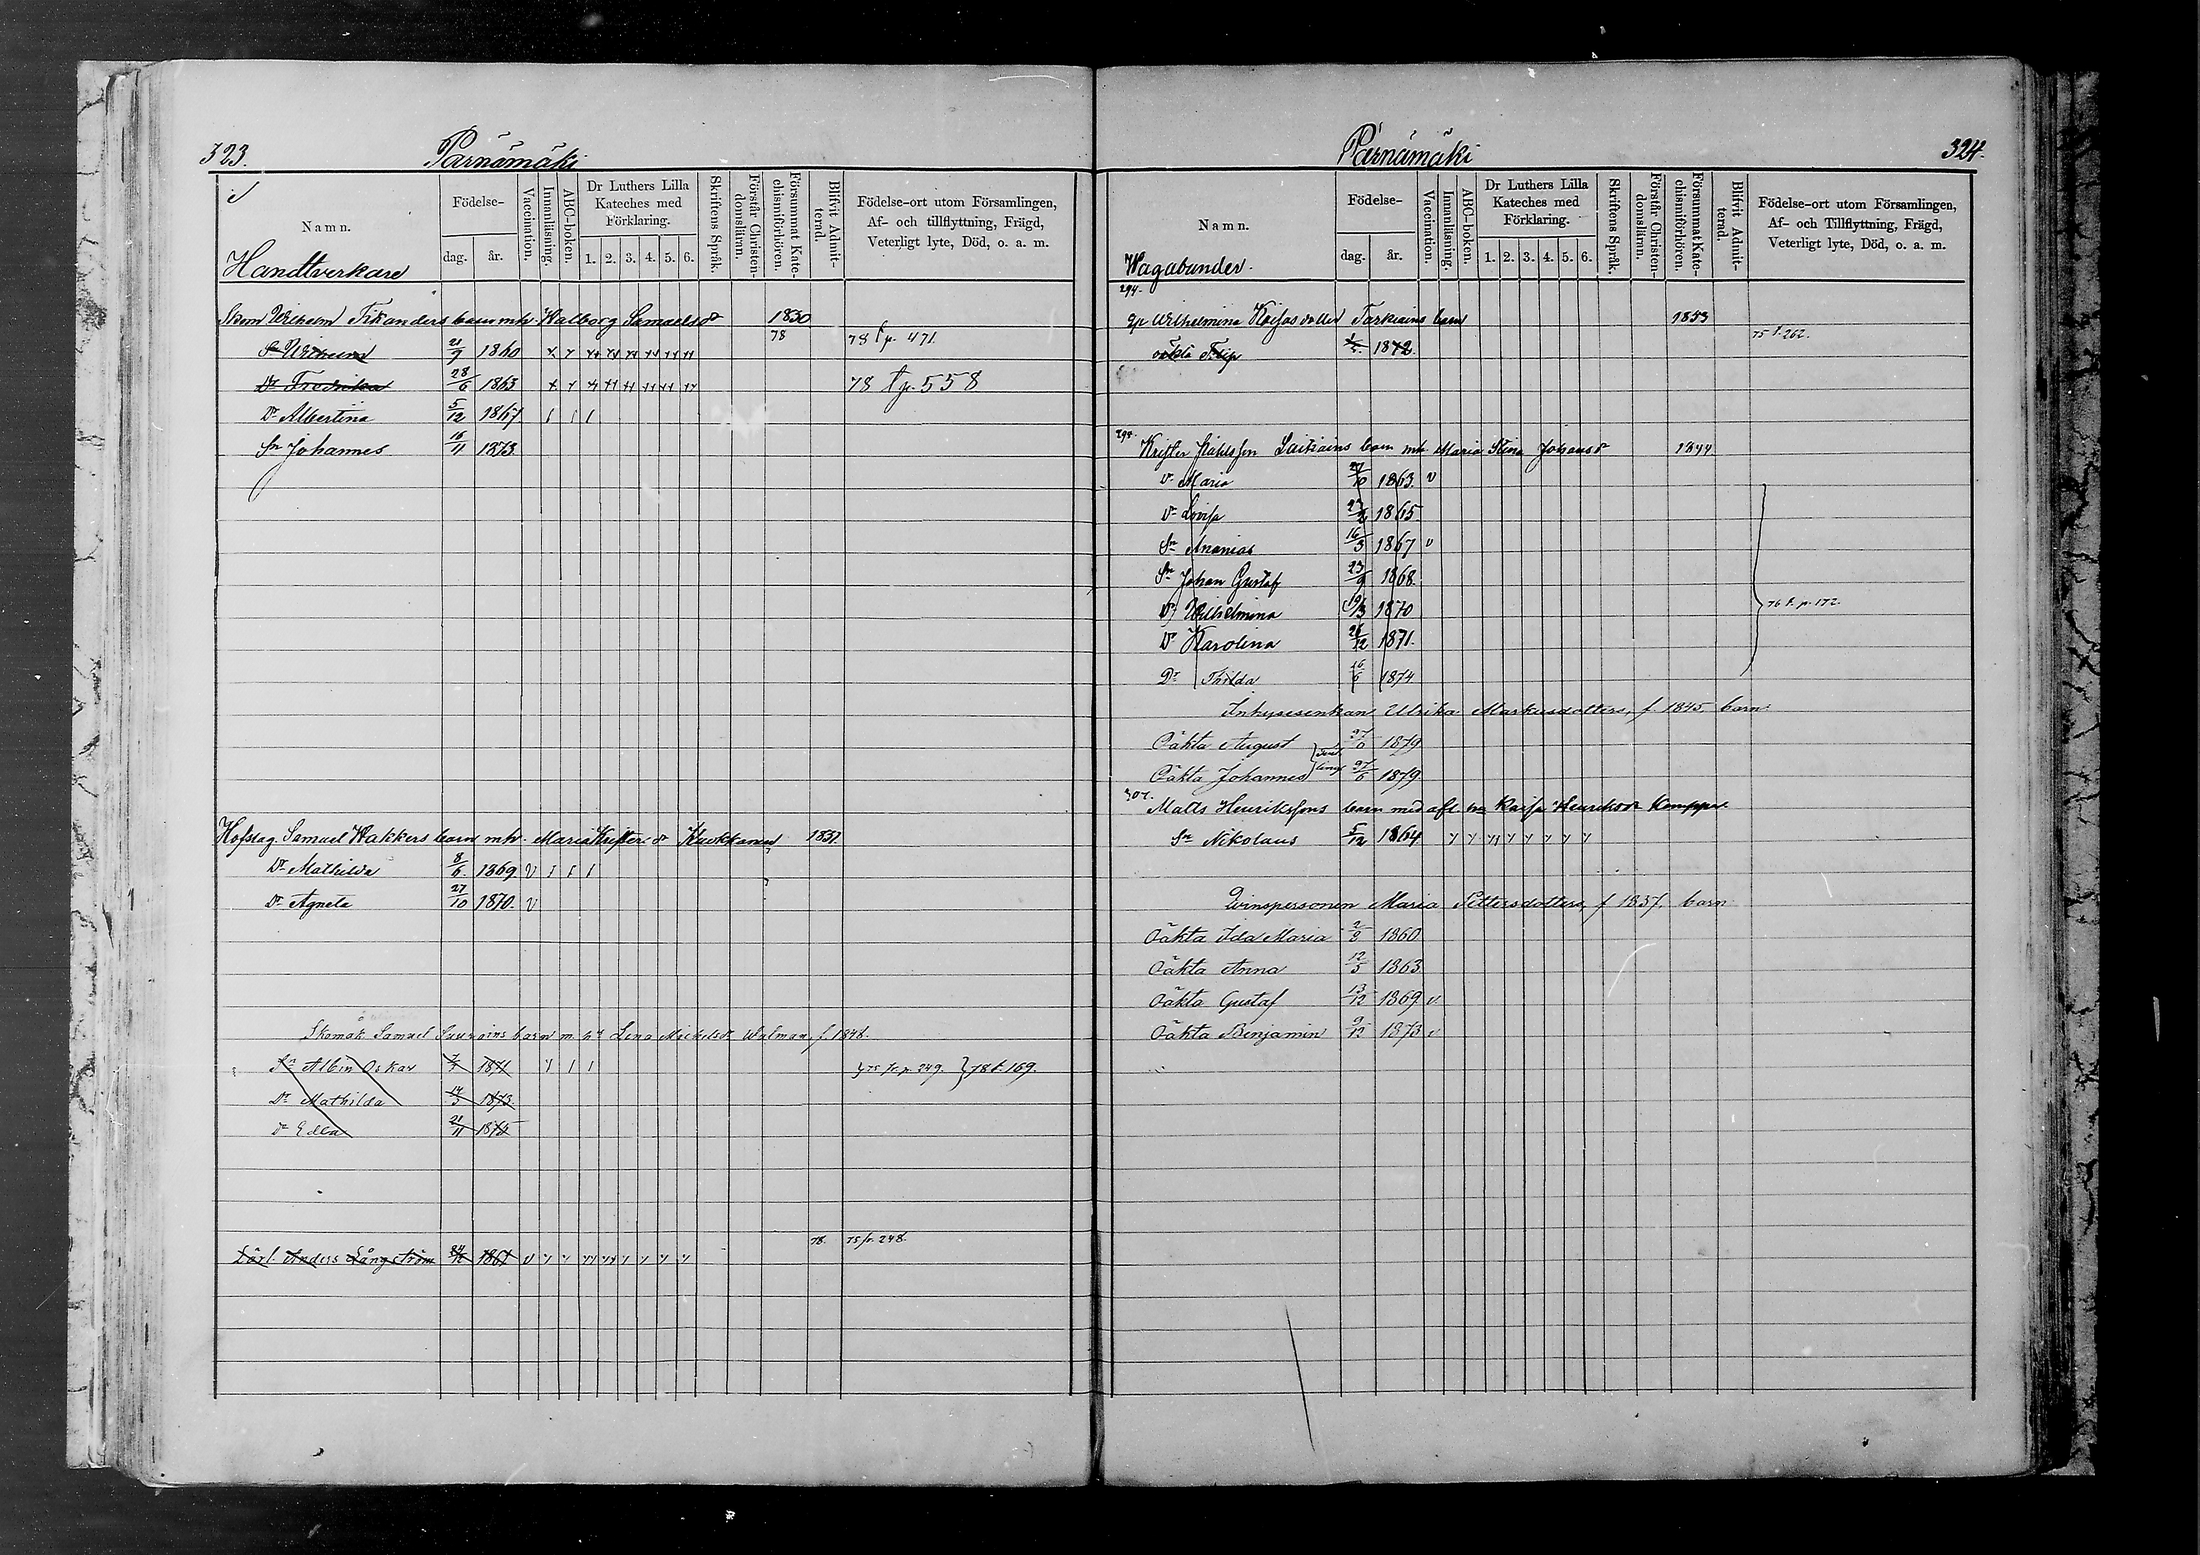 323.
Pärnämäki
Namn.
Födelse-
dag.
år.
Vaccination.
Innanläsning.
ABC-boken.
Dr Luthers Lilla
Kateches med
Förklaring.
1. 2. 3. 4. 5. 6.
Skriftens Språk.
Förstår Christen-
domsläran.
Försummat Kate-
chismiförhören.
Blifvit Admit-
terad.
Födelse-ort utom Församlingen,
Af- och tillflyttning, Frägd,
Veterligt lyte, Död, o. a. m.
Handtverkare
Skom Wilhelm Tikanders barn mh. Walborg Samuelsdr 1830
Sn Wilhelm 21/9 1860 78 78 f p. 471.
Dr Fredrika 28/6 1863 78 f p. 558
Dr Albertina 5/12 1867.
Sn Johannes 16/11 1873.
Hofslag. Samuel Wakkers barn mh. Maria Kristersdr Kuokkanen 1837.
Dr Mathilda 8/6. 1869. v
Dr Agneta 27/10 1870. v
Skomak Samuel barn m. hu Lena Mickelsdr f. 1848.
Sn Albin Oskar 1871 75 fr. p. 249. } 78 f. 169.
Dr Mathilda 14/3 1873.
Dr Edla 21/11 1875
78. 75 fr. 248.
Lärl. Anders Långström 1861 v
Pärnämäki
324.
Namn.
Födelse-
dag.
år.
Vaccination.
Innanläsning.
ABC-boken.
Dr Luthers Lilla
Kateches med
Förklaring.
1. 2. 3. 4. 5. 6.
Skriftens Språk.
Förstår Christen-
domsläran.
Försummat Kate-
chismiförhören.
Blifvit Admit-
terad.
Födelse-ort utom Församlingen,
Af- och Tillflyttning, Frägd,
Veterligt lyte, Död, o. a. m.
Wagabunder.
294.
Wilhelmina Tarkiains barn 1853
oäkta Filip 1872. 75 f. 262.
Krister Laitiains barn mh. Maria Stina Johansdr 1844
Dr Maria 27/10 1863. v
Dr Lovisa 1865.
Sn Ananias 16/3 1867 v
Sn Johan Gustaf 23/9 1868.
Dr Wilhelmina 19/3 1870 76 f. p. 172.
Dr Karolina 26/12 1871.
Dr Thilda 16/6 1874
Inhysesenkan Ulrika Markusdotters, f. 1845, barn:
Oäkta August 1879
Oäkta Johannes 27/6 1879
307.
Matts Henrikssons barn med afl. hu Kaisa Henriksdr Kemppi
Sn Nikolaus 5/12 1864
Qvinspersonen Maria Pettersdotters, f 1837. barn
Oäkta Ida Maria 2/8 1860
Oäkta Anna 12/5 1863
Oäkta Gustaf 13/12 1869 v.
Oäkta Benjamin 9/12 1873 v